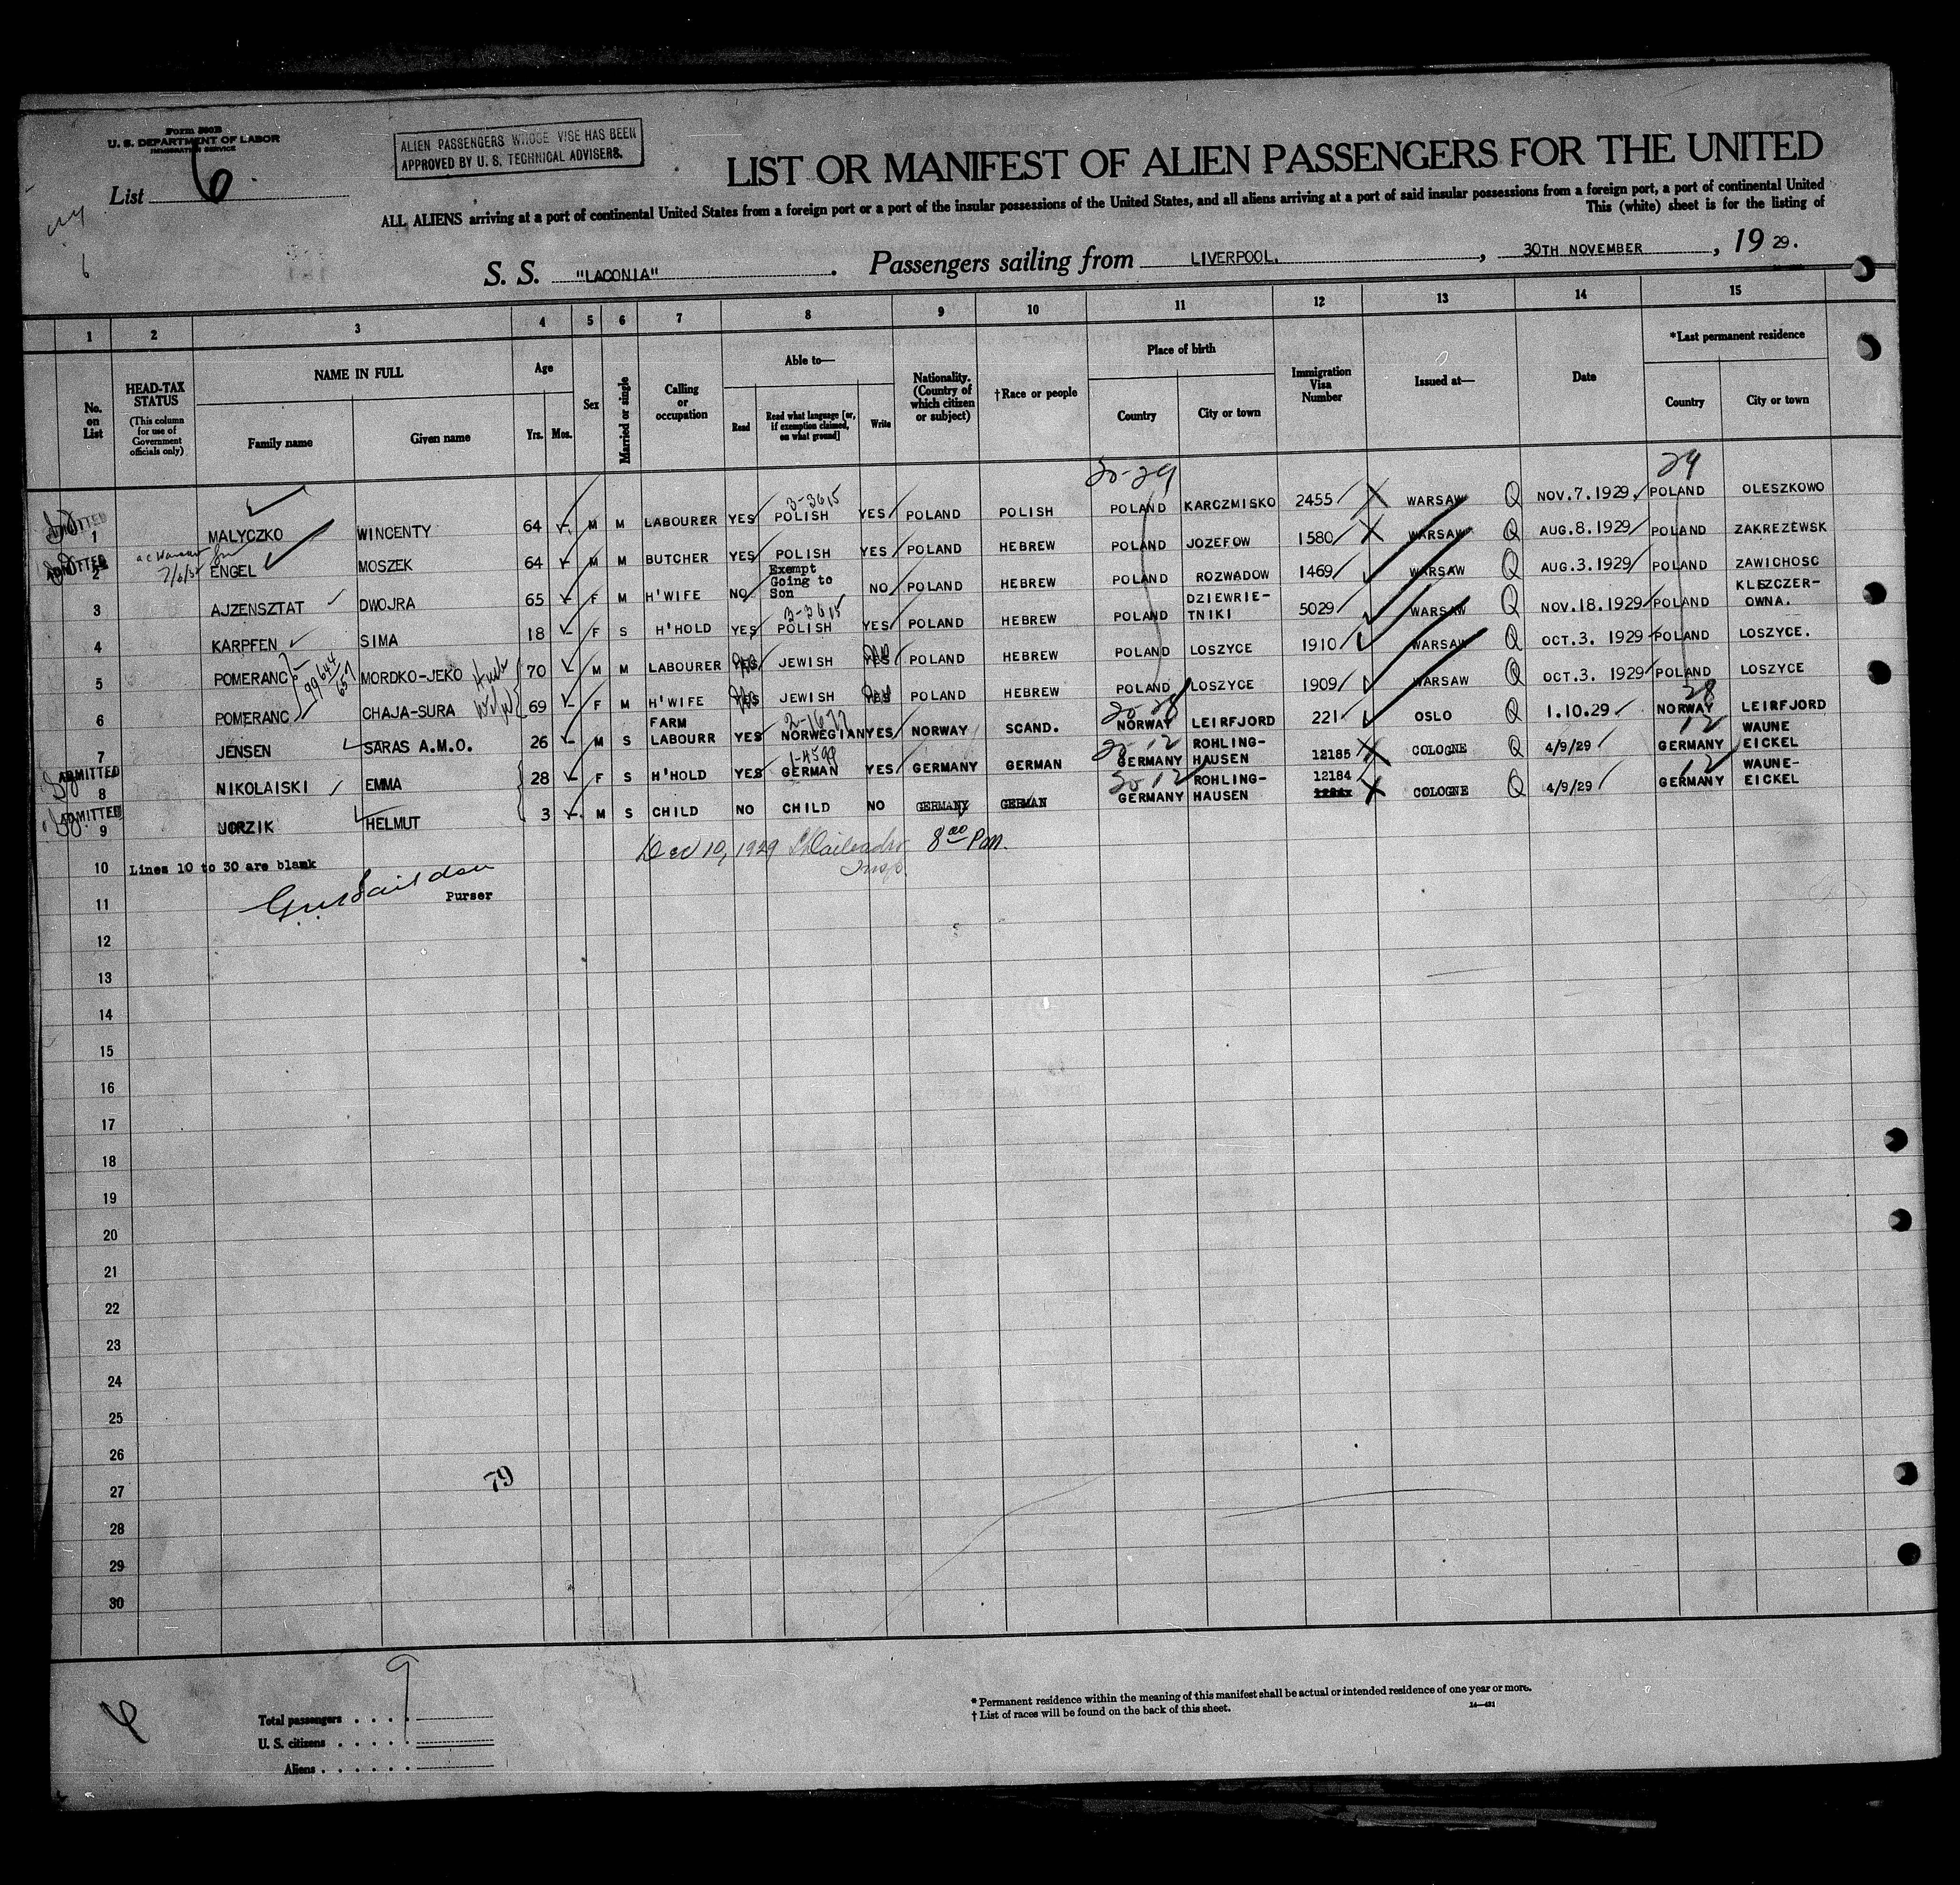 Form 500B
U. S. DEPARTMENT OF LABOR
IMMIGRATION SERVICE
ALIEN PASSENGERS WHOSE VISE HAS BEEN
APPROVED BY U. S. TECHNICAL ADVISERS.
List 6
LIST OR MANIFEST OF ALIEN PASSENGERS FOR THE UNITED
ALL ALIENS arriving at a port of continental United States from a foreign port or a port of the insular possessions of the United States, and all aliens arriving at a port of said insular possessions from a foreign port, a port of continental United
This (white) sheet is for the listing of
S. S. "LACONIA". Passengers sailing from LIVERPOOL, 30TH NOVEMBER, 19 29.
1 2 3 4 5 6 7 8 9 10 11 12 13 14 15
No. on List
HEAD-TAX STATUS
(This column for use of Government officials only)
NAME IN FULL
Family name Given name
Age
Yrs. Mos.
Sex
Married or single
Calling or occupation
Able to—
Read
Read what language [or, if exemption claimed, on what ground]
Write
Nationality. (Country of which citizen or subject)
†Race or people
Place of birth
Country City or town
Immigration Visa Number
Issued at—
Date
*Last permanent residence
Country City or town
20-29 29
3-3615
ADMITTED 1 MALYCZKO WINCENTY 64 M M LABOURER YES POLISH YES POLAND POLISH POLAND KARCZMISKO 2455 WARSAW Q NOV.7.1929. POLAND OLESZKOWO
ADMITTED 2 ENGEL MOSZEK 64 M M BUTCHER YES POLISH YES POLAND HEBREW POLAND JOZEFOW 1580 WARSAW Q AUG.8.1929 POLAND ZAKREZEWSK
3 AJZENSZTAT DWOJRA 65 F M H'WIFE NO Exempt Going to Son NO POLAND HEBREW POLAND ROZWADOW 1469 WARSAW Q AUG.3.1929 POLAND ZAWICHOSC
3-3615
4 KARPFEN SIMA 18 F S H'HOLD YES POLISH YES POLAND HEBREW POLAND DZIEWRIE-TNIKI 5029 WARSAW Q NOV.18.1929 POLAND KLESZCZER-OWNA.
5 POMERANC MORDKO-JEKO 70 M M LABOURER YES JEWISH YES POLAND HEBREW POLAND LOSZYCE 1910 WARSAW Q OCT.3. 1929 POLAND LOSZYCE.
99644/657
6 POMERANC CHAJA-SURA 69 F M H'WIFE YES JEWISH YES POLAND HEBREW POLAND LOSZYCE 1909 WARSAW Q OCT.3. 1929 POLAND LOSZYCE
2-1677 20-28 28
7 JENSEN SARAS A.M.O. 26 M S FARM LABOURR YES NORWEGIAN YES NORWAY SCAND. NORWAY LEIRFJORD 221 OSLO Q 1.10.29 NORWAY LEIRFJORD
1-4599 20-12 12
ADMITTED 8 NIKOLAISKI EMMA 28 F S H'HOLD YES GERMAN YES GERMANY GERMAN GERMANY ROHLING-HAUSEN 12185 COLOGNE Q 4/9/29 GERMANY WAUNE EICKEL
20-12 12
ADMITTED 9 JORZIK HELMUT 3 M S CHILD NO CHILD NO GERMANY GERMAN GERMANY ROHLING-HAUSEN 12184 COLOGNE Q 4/9/29 GERMANY WAUNE-EICKEL
Dec 10, 1929 8 00 Pm.
Insp.
10 Lines 10 to 30 are blank
11 Purser
12
13
14
15
16
17
18
19
20
21
22
23
24
25
26
27
79
28
29
30
9
6
Total passengers
U. S. citizens
Aliens
* Permanent residence within the meaning of this manifest shall be actual or intended residence of one year or more.
† List of races will be found on the back of this sheet.
14—481